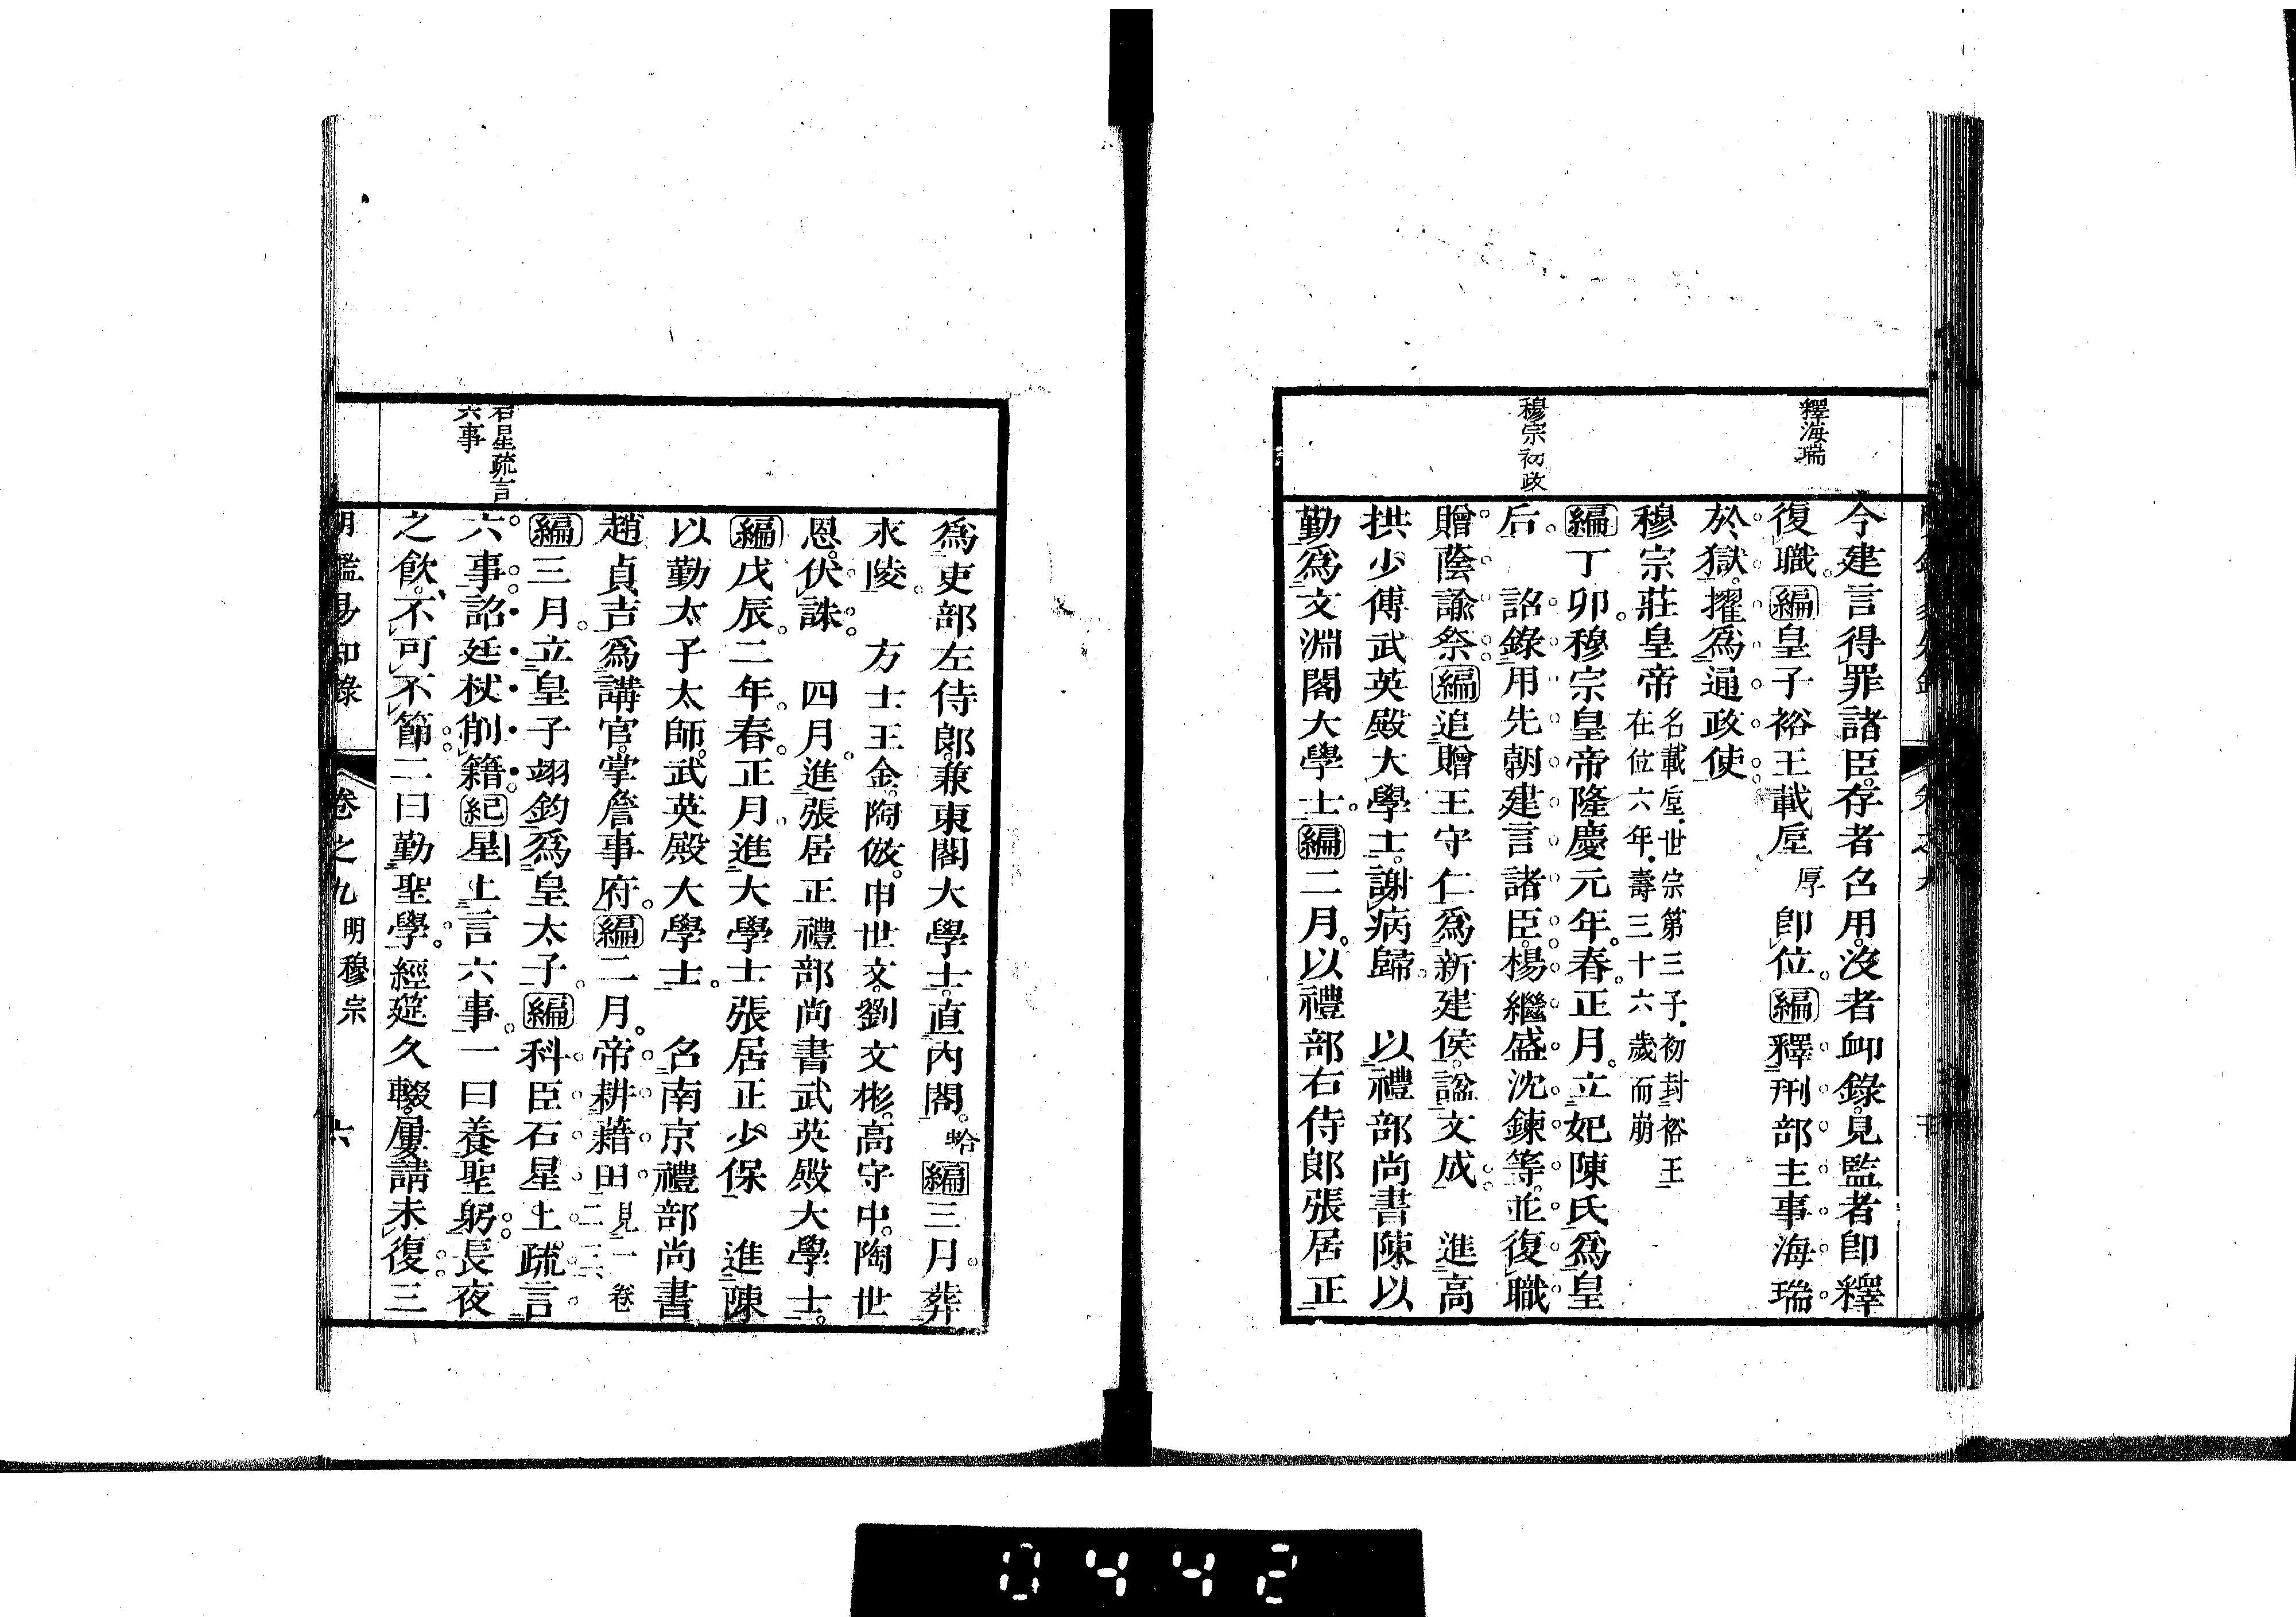 釋海瑞
今建言得罪諸臣。存者召用。沒者卹錄。見監者卽釋
復職。編皇子裕王載垕厚卽位。編釋刑部主事海瑞
於獄。擢爲通政使
穆宗莊皇帝名載垕。世宗第三子。初封裕王
在位六年。壽三十六歲而崩
編丁卯。穆宗皇帝隆慶元年。春。正月。立妃陳氏爲皇
穆宗初政
后。詔錄用先朝建言諸臣。楊繼盛沈鍊等。並復職
贈蔭諭祭。編追贈王守仁爲新建侯。諡文成 進高
拱少傅武英殿大學士。謝病歸。以禮部尚書陳以
勤爲文淵閣大學士。編二月。以禮部右侍郎張居正
爲吏部左侍郎。兼東閣大學士。直內閣。編三月。葬
永陵。方士王金。陶倣。申世文。劉文彬。高守中。陶世
恩。伏誅。四月。進張居正禮部尚書武英殿大學士。
編戊辰。二年。春。正月。進大學士張居正。少保 進陳
以勤太子太師。武英殿大學士。召南京禮部尚書
趙貞吉爲講官。掌詹事府。編二月。帝耕藉田。見一卷
二二
編三月。立皇子翊鈞爲皇太子。編科臣石星上疏言
石星疏言
六事
六事。詔廷杖削籍。紀星上言六事。一曰養聖躬。長夜
之飮。不可不節。二曰勤聖學。經筵久輟。屢請未復。三
明鑑易知錄 卷之九 明穆宗 六
0442